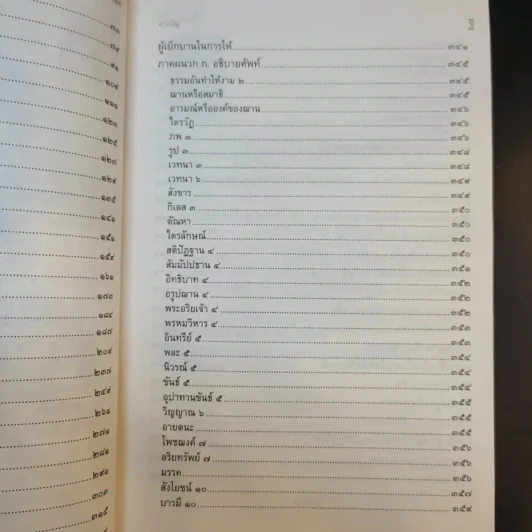 ๗๓
๗๙
๙๑
๑๐๙
๑๑๑
๑๒๑
๑๒๕
๑๒๗
๑๒๙
๑๓๕
๑๔๑
๑๕๑
๑๕๙
๑๖๑
๑๗๓
๑๘๔
๑๘๗
๒๐๙
๒๓๗
๒๔๙
๒๖๑
๒๗๑
๒๘๑
๒๙๑
๓๐๓
๓๑๕
สารบัญ
ผู้เบิกบานในการให้ ๓๔๑
ภาคผนวก ก. อธิบายศัพท์ ๓๔๕
ธรรมอันทำให้งาม ๒ ๓๔๕
ฌานหรือสมาธิ ๓๔๕
อารมณ์หรือองค์ของฌาน ๓๔๖
ไตรวัฏ ๓๔๖
ภพ ๓ ๓๔๖
รูป ๓ ๓๔๘
เวทนา ๓ ๓๔๘
เวทนา ๖ ๓๔๙
สังขาร ๓๔๙
กิเลส ๓ ๓๕๐
ตัณหา ๓๕๐
ไตรลักษณ์ ๓๕๐
สติปัฏฐาน ๔ ๓๕๑
สัมมัปปธาน ๔ ๓๕๑
อิทธิบาท ๔ ๓๕๒
อรูปฌาน ๔ ๓๕๒
พระอริยเจ้า ๔ ๓๕๒
พรหมวิหาร ๔ ๓๕๓
อินทรีย์ ๕ ๓๕๓
พละ ๕ ๓๕๔
นิวรณ์ ๕ ๓๕๔
ขันธ์ ๕ ๓๕๔
อุปาทานขันธ์ ๕ ๓๕๕
วิญญาณ ๖ ๓๕๕
อายตนะ ๓๕๕
โพชฌงค์ ๗ ๓๕๖
อริยทรัพย์ ๗ ๓๕๖
มรรค ๓๕๖
สังโยชน์ ๑๐ ๓๕๗
บารมี ๑๐ ๓๕๙